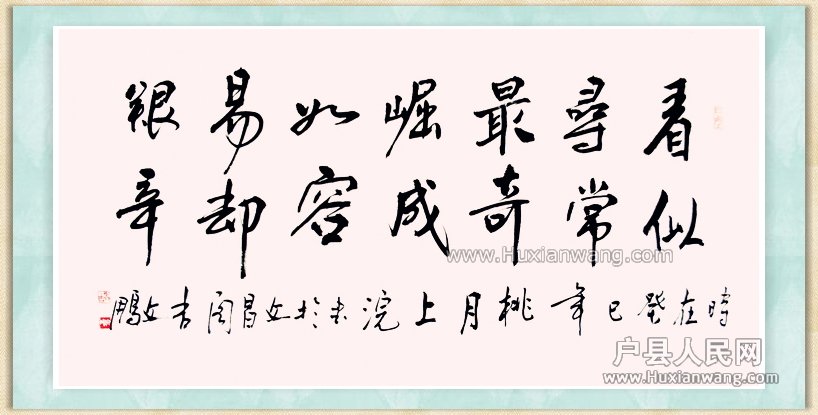 看似
尋常
最奇
崛成
如容
易却
艱辛
時在癸巳年桃月上浣书於文昌阁吉文鵬
www.Huxianwang.com
户县人民网
www.Huxianwang.com